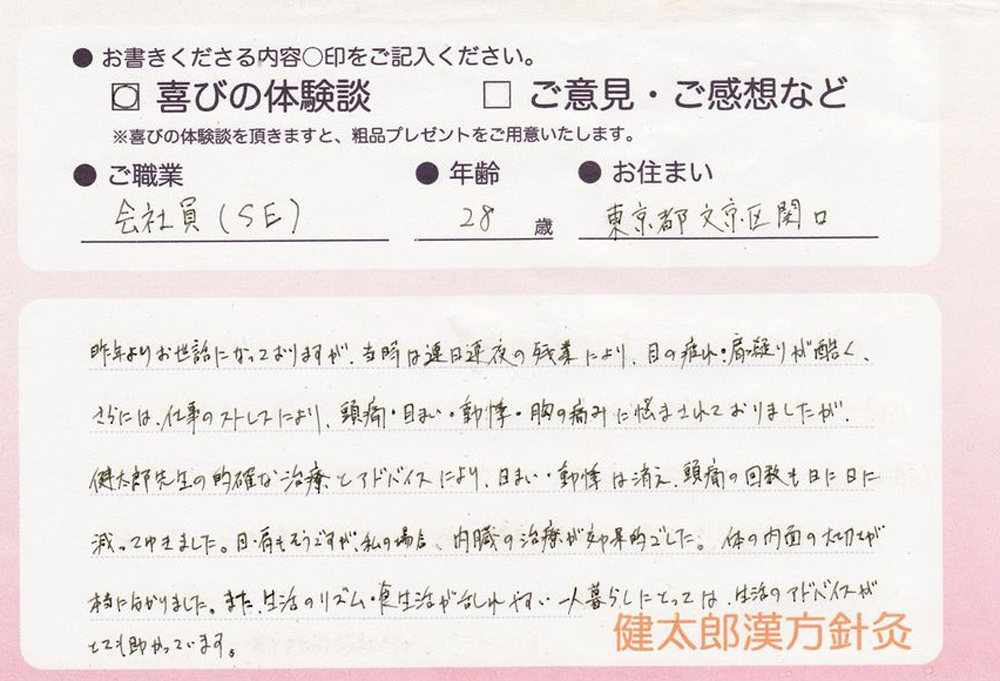 ● お書きくださる内容○印をご記入ください。
喜びの体験談 □ ご意見・ご感想など
※喜びの体験談を頂きますと、粗品プレゼントをご用意いたします。
● ご職業 ● 年齢 ● お住まい
会社員(SE) 28 歳 東京都文京区関口
昨年よりお世話になっておりますが、当時は連日連夜の残業により、目の疲れ・肩凝りが酷く、
さらには、仕事のストレスにより、頭痛・目まい・動悸・胸の痛みに悩まされておりましたが、
健太郎先生の的確な治療とアドバイスにより、目まい・動悸は消え、頭痛の回数も日に日に
減ってゆきました。目・肩もそうですが、私の場合、内臓の治療が効果的でした。体の内面の大切さが
本当に分かりました。また、生活のリズム・食生活が乱れやすい一人暮らしにとっては、生活のアドバイスが
とても助かっています。
健太郎漢方針灸